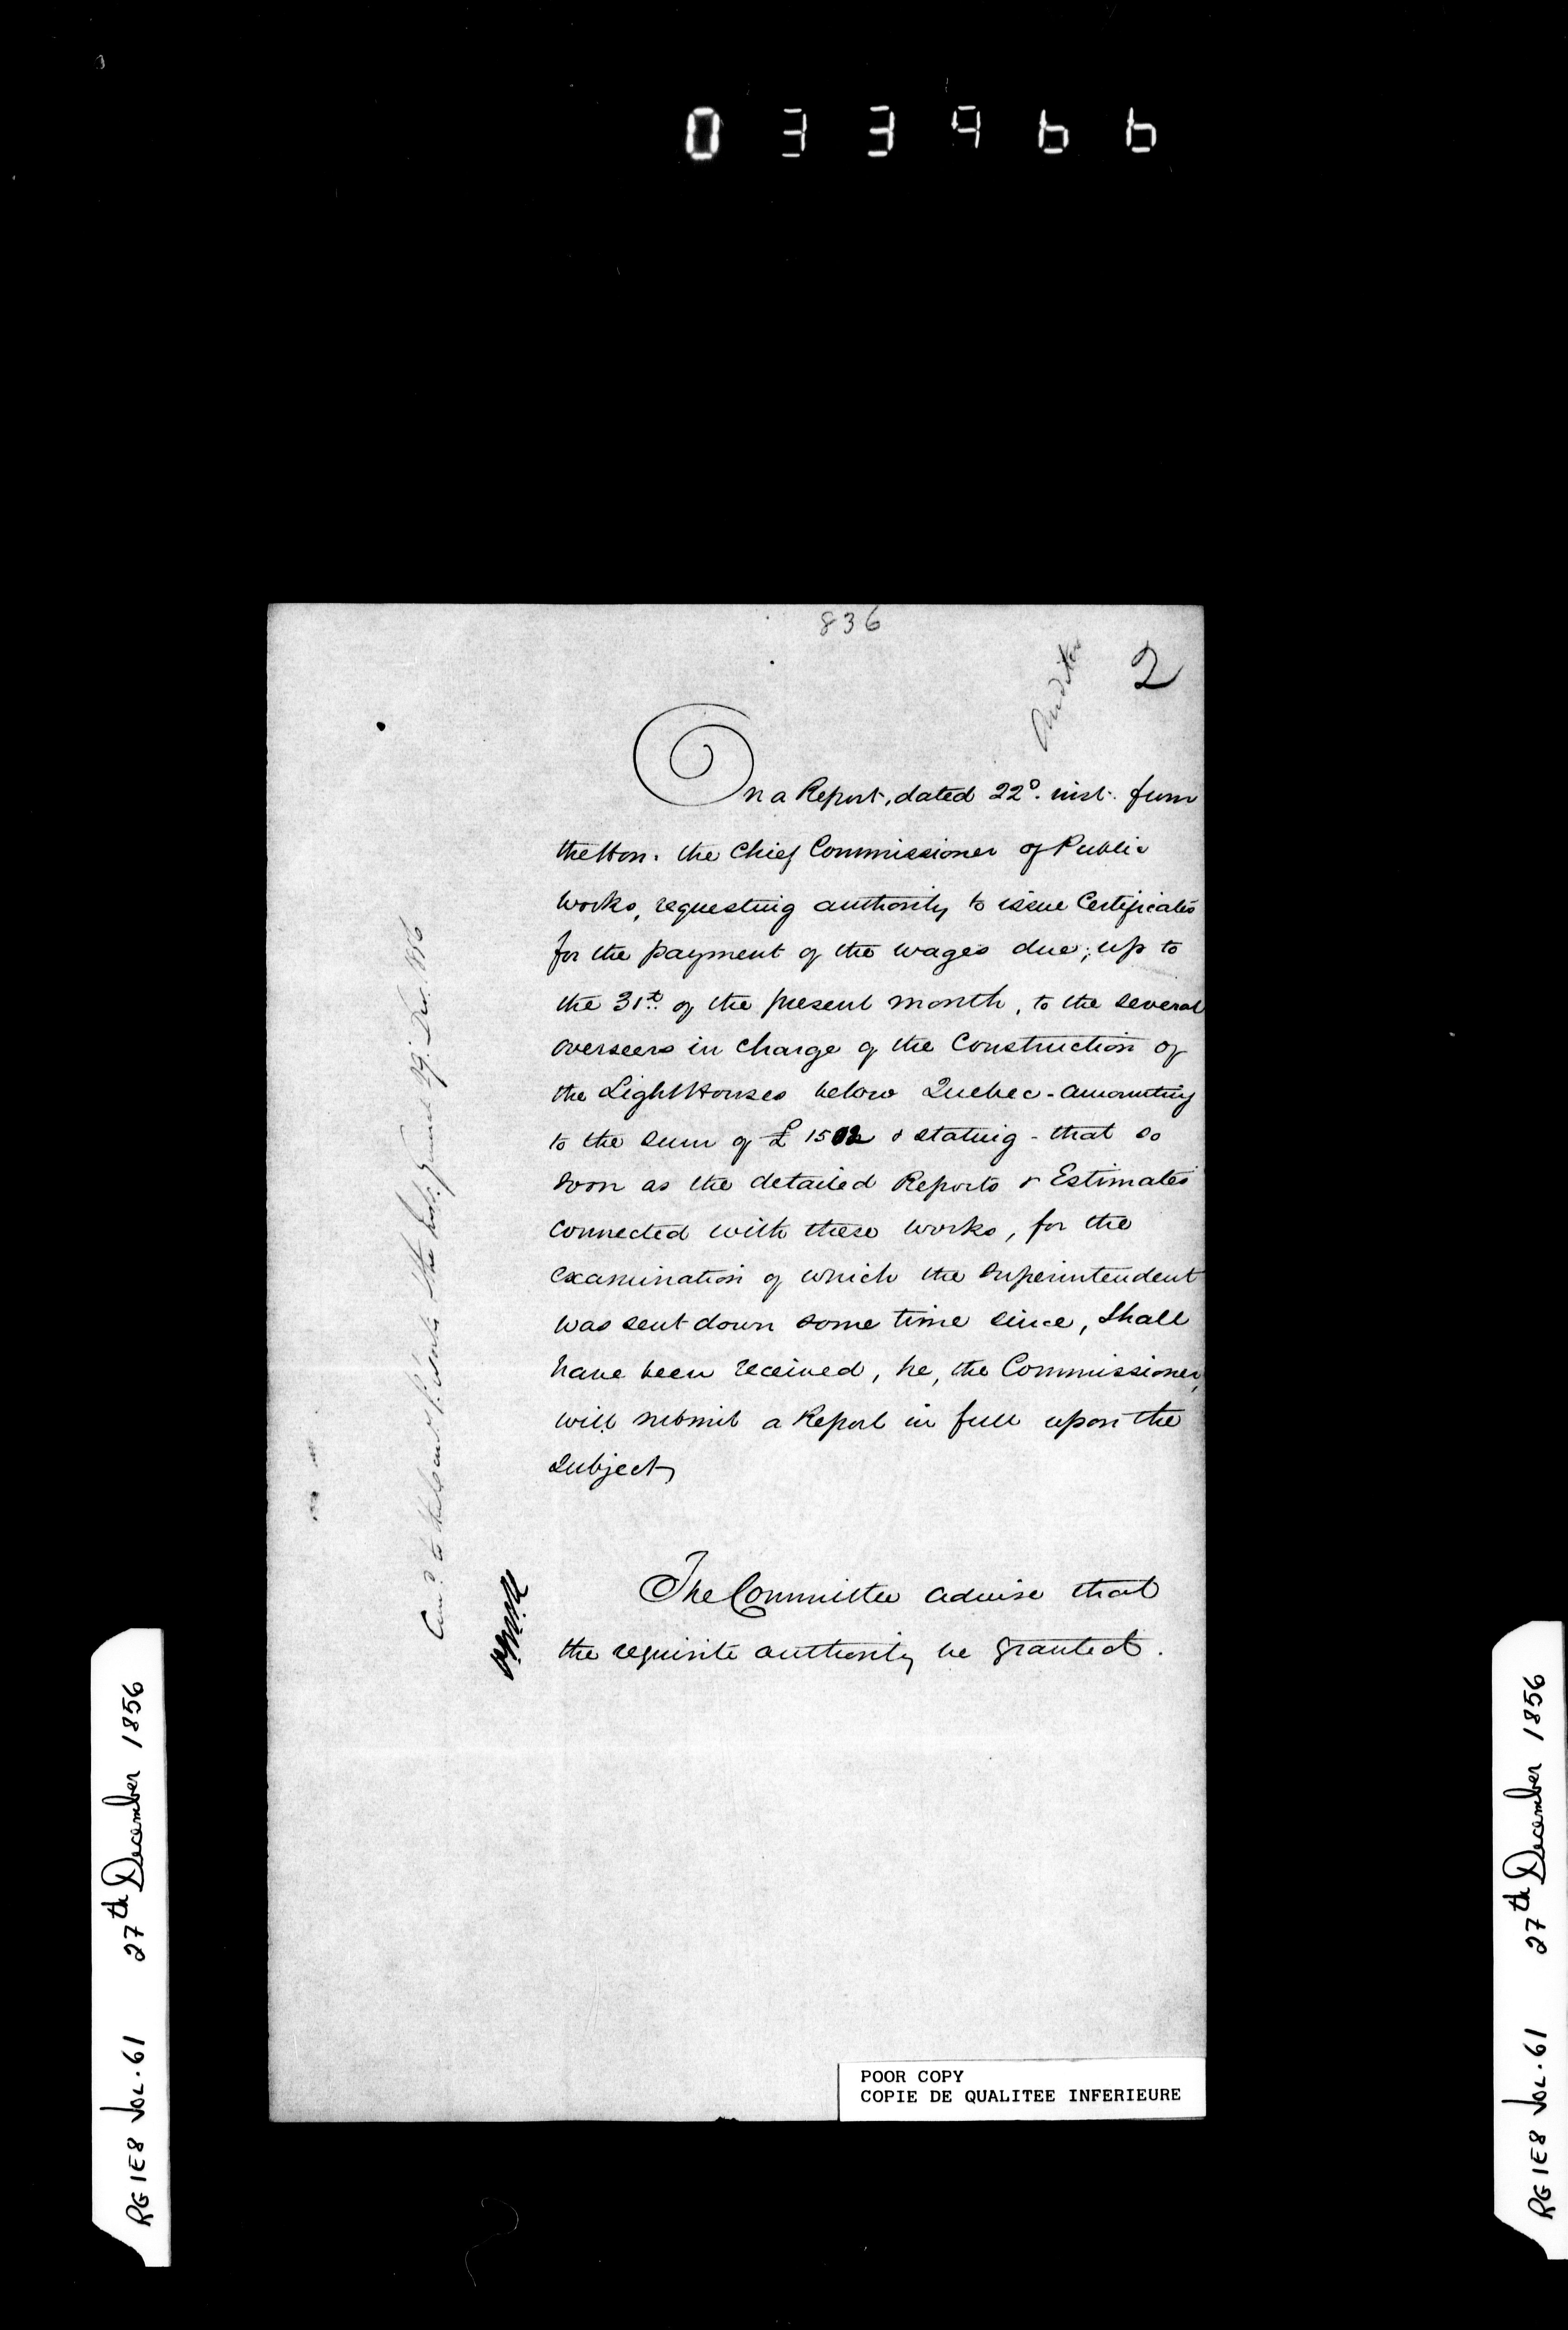 033966
836
2
Auditor
On a Report, dated 22º. inst. from
the Hon. the Chief Commissioner of Public
Works, requesting authority to issue Certificates
for the payment of the wages due, up to
the 31st. of the present month, to the several
overseers in charge of the Construction of
the Light Houses below Quebec - amounting
to the sum of £ 1502 & stating - that so
soon as the detailed Reports & Estimates
connected with these works, for the
examination of which the Superintendent
was sent down some time since, shall
have been received, he, the Commissioner,
will submit a Report in full upon the
subject,
The Committee advise that
the requisite authority be granted.
29. Dec. 1856
POOR COPY
COPIE DE QUALITEE INFERIEURE
RG 1E8 VOL.61 27th December 1856
RG 1E8 VOL.61 27th December 1856